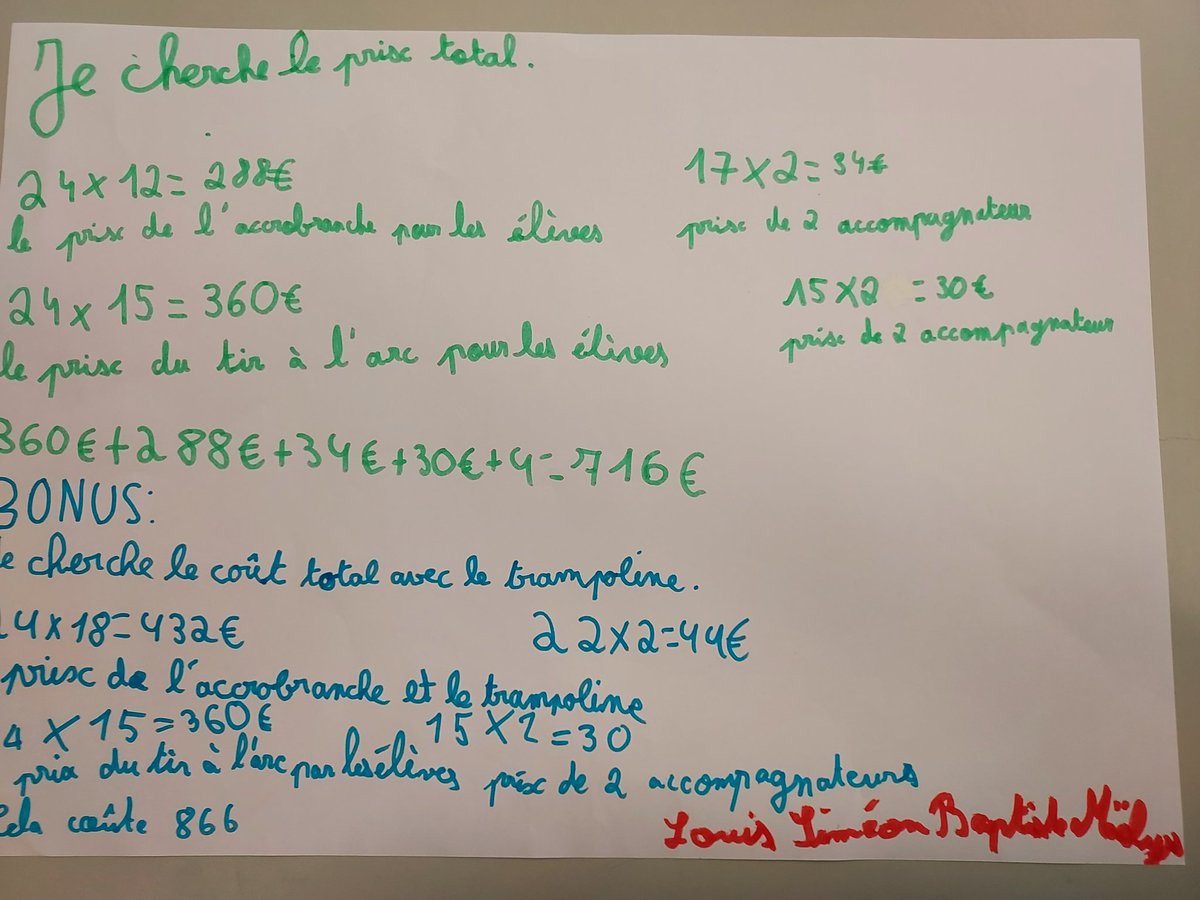 Je cherche le prix total.
24 x 12 = 288€
le prix de l'accrobranche pour les élèves
17 x 2 = 34€
prix de 2 accompagnateur
24 x 15 = 360€
le prix du tir à l'arc pour les élèves
15 x 2 = 30€
prix de 2 accompagnateur
360€ + 288€ + 34€ + 30€ + 4 = 716€
BONUS:
Je cherche le coût total avec le trampoline.
24 x 18 = 432€
22 x 2 = 44€
prix de l'accrobranche et le trampoline
4 x 15 = 360€
15 x 2 = 30
prix du tir à l'arc par les élèves
prix de 2 accompagnateurs
Cela coûte 866
Louis Siméon Baptiste